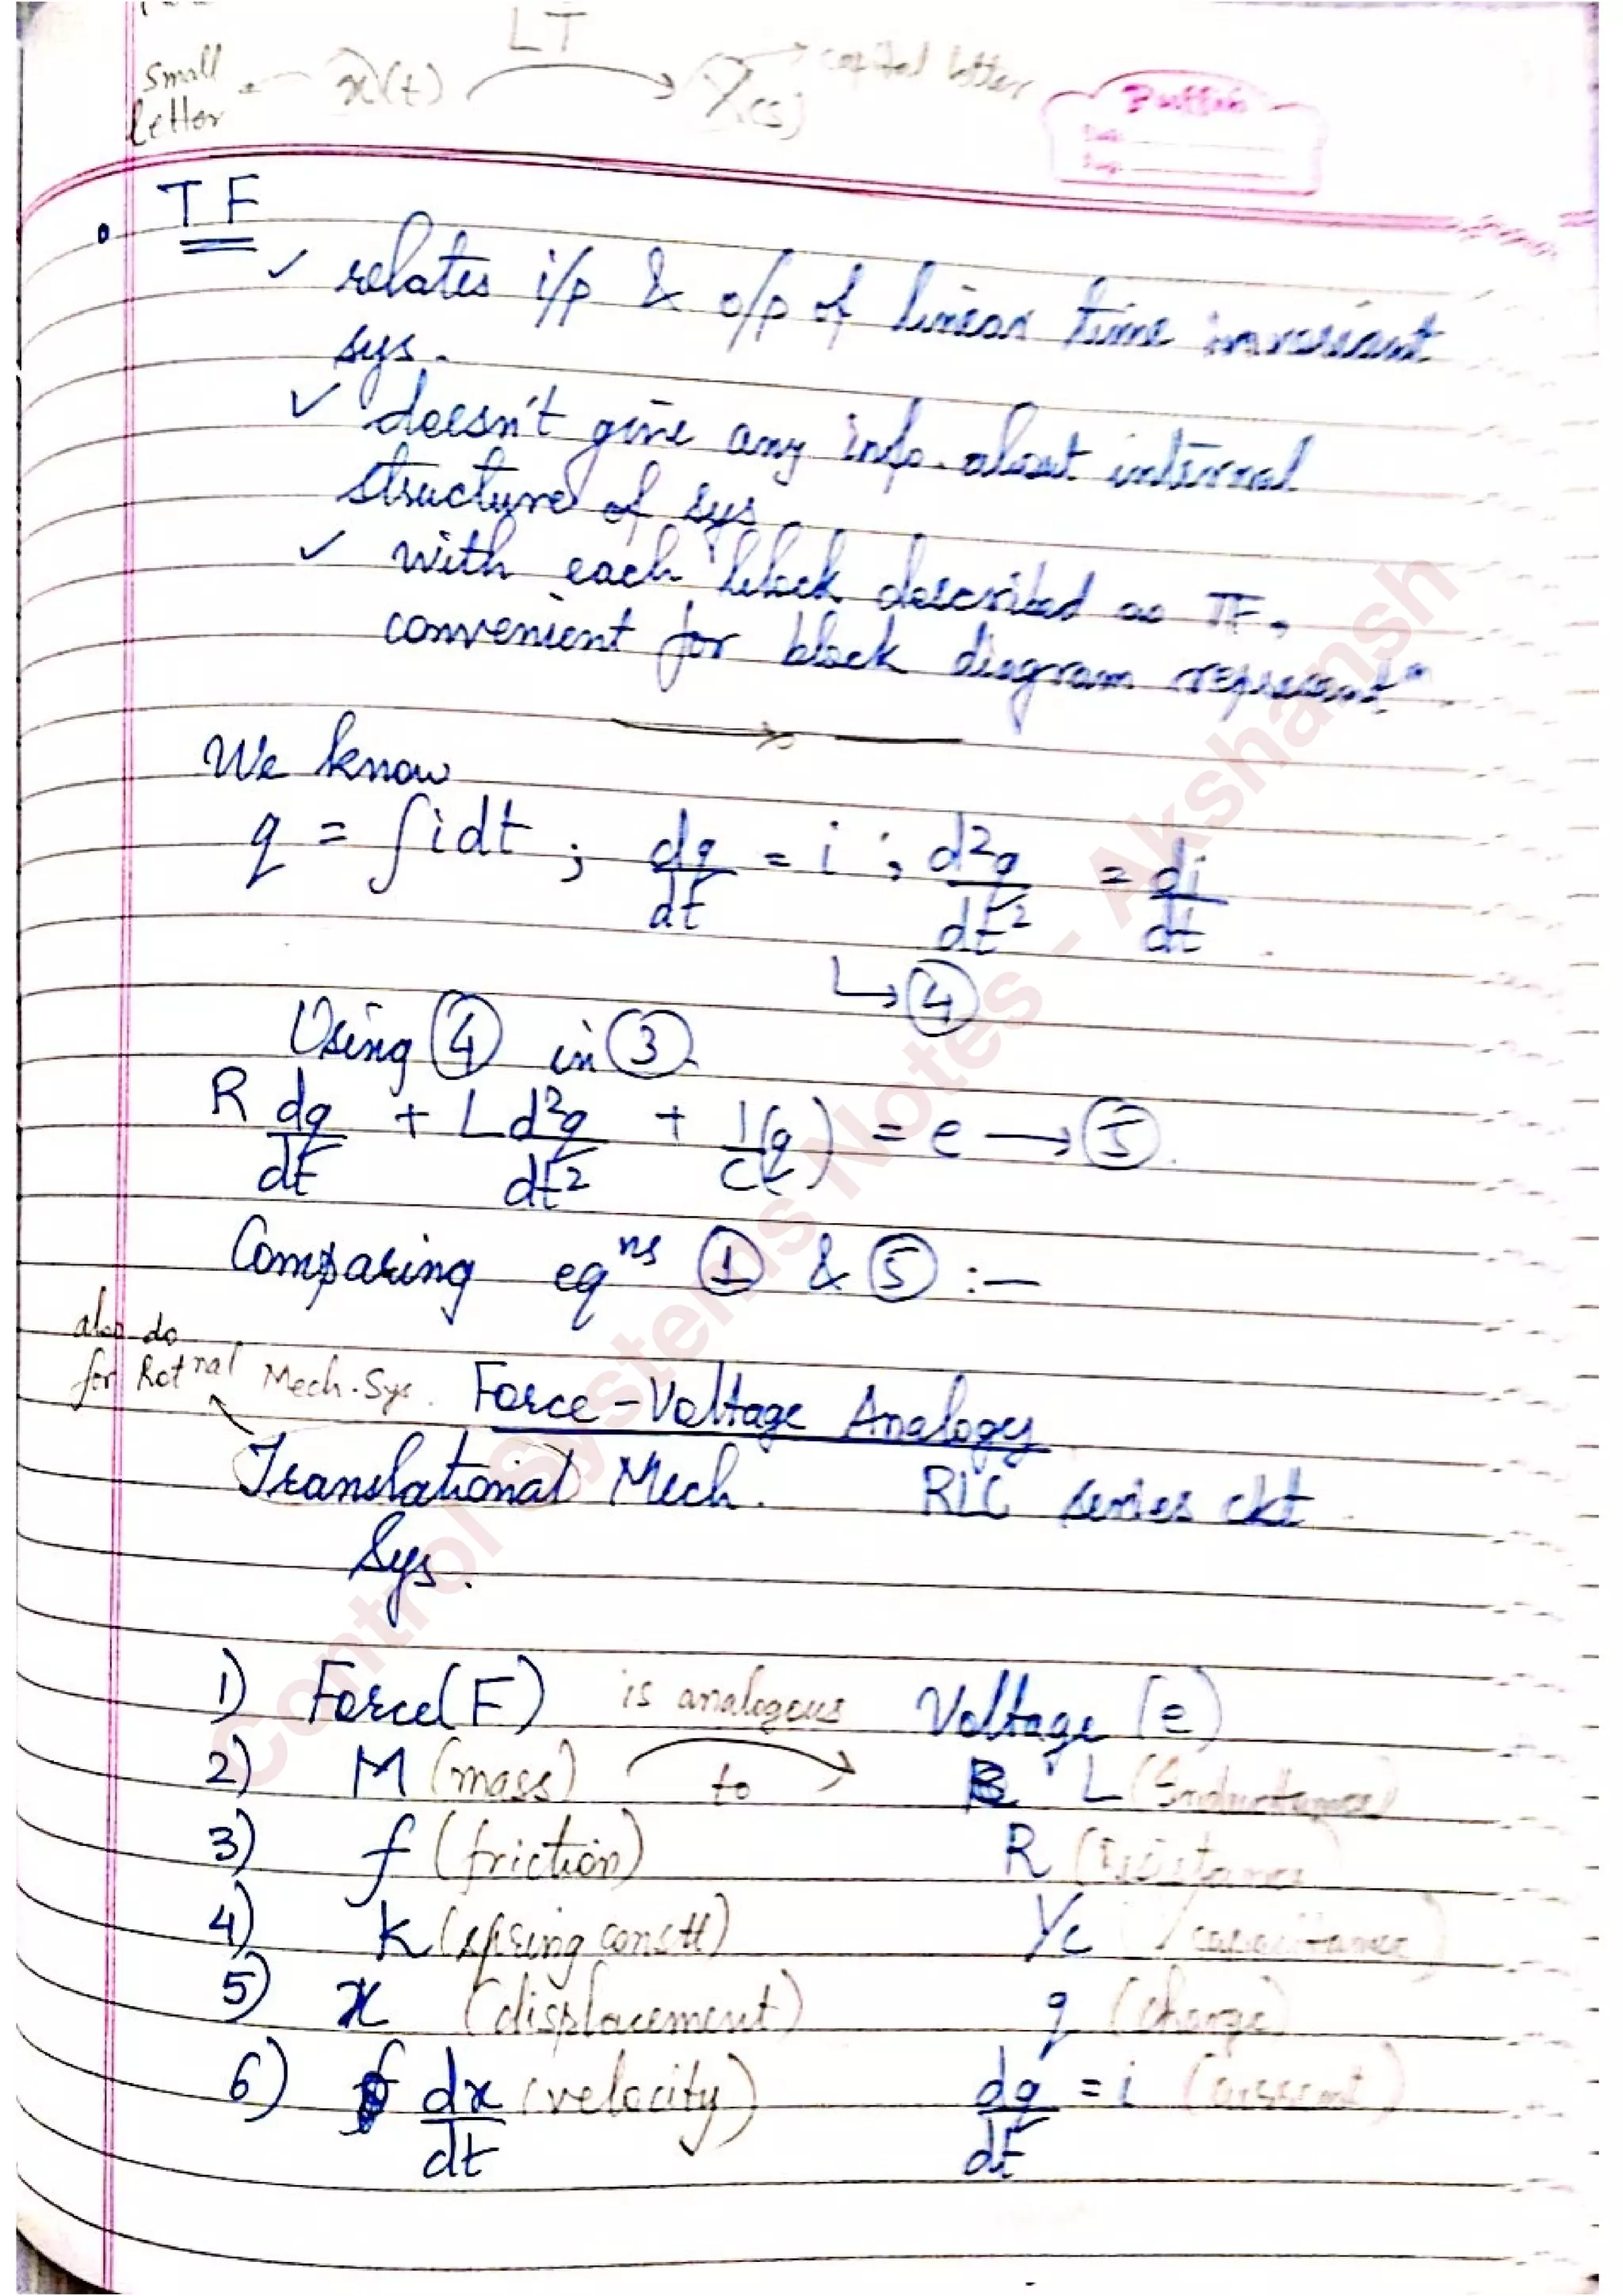 LT
small letter ← x(t) → X(s) → capital letter
TF
✓ relates i/p & o/p of linear time invariant
sys.
✓ doesn't give any info. about internal
structure of sys
✓ with each block described as TF,
convenient for block diagram representⁿ
We know
q = ∫idt ; dq/dt = i ; d²q/dt² = di/dt
↳ ④
Using ④ in ③
R dq/dt + L d²q/dt² + 1/C (q) = e → ⑤
Comparing eqⁿˢ ① & ⑤ :—
also do
for Rotⁿᵃˡ Mech. Sys.
Force-Voltage Analogy
Translational Mech. RLC series ckt
Sys.
1) Force(F) is analogous Voltage (e)
2) M (mass) to L (Inductance)
3) f (friction) R (resistance)
4) K (spring constt) 1/C (1/capacitance)
5) x (displacement) q (charge)
6) dx/dt (velocity) dq/dt = i (current)
Control Systems Notes - Akshansh